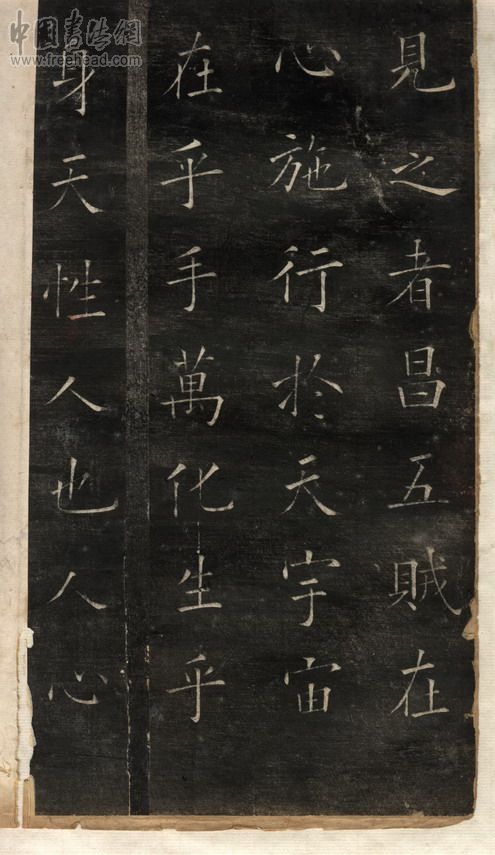 見之者昌五賊在
心施行於天宇宙
在乎手萬化生乎
身天性人也人心
中国书法網
www.freehead.com